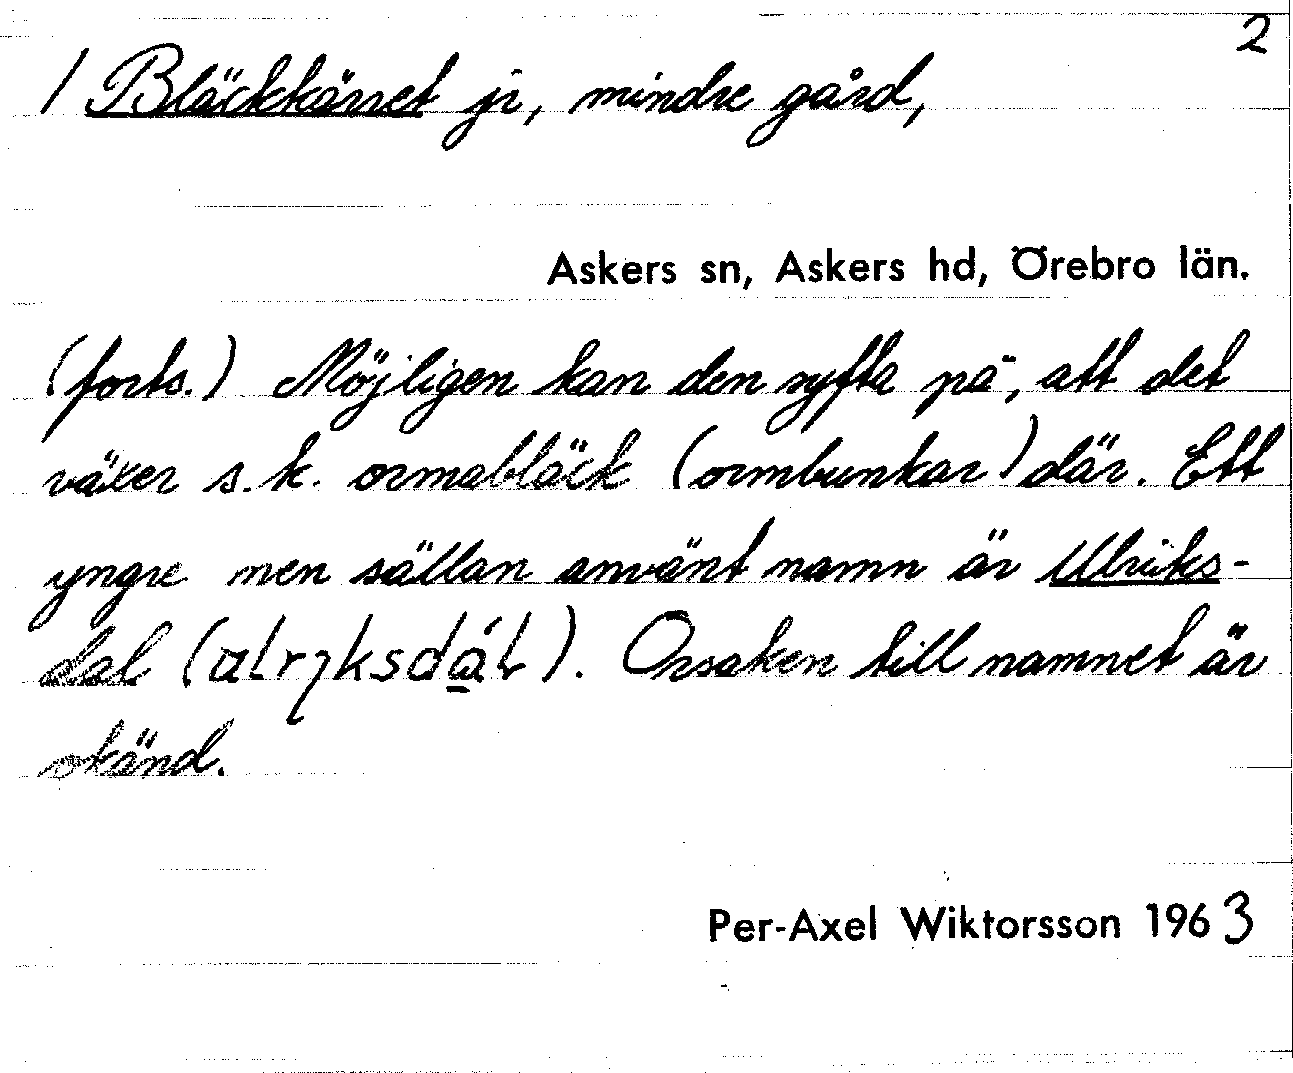 2
/ Bläckkärret ji, mindre gård,
Askers sn, Askers hd, Örebro län.
(forts.) Möjligen kan den syfta på, att det
växer s.k. ormabläck (ormbunkar) där. Ett
yngre men sällan använt namn är Ulriks-
dal (). Orsaken till namnet är
okänd.
Per-Axel Wiktorsson 1963